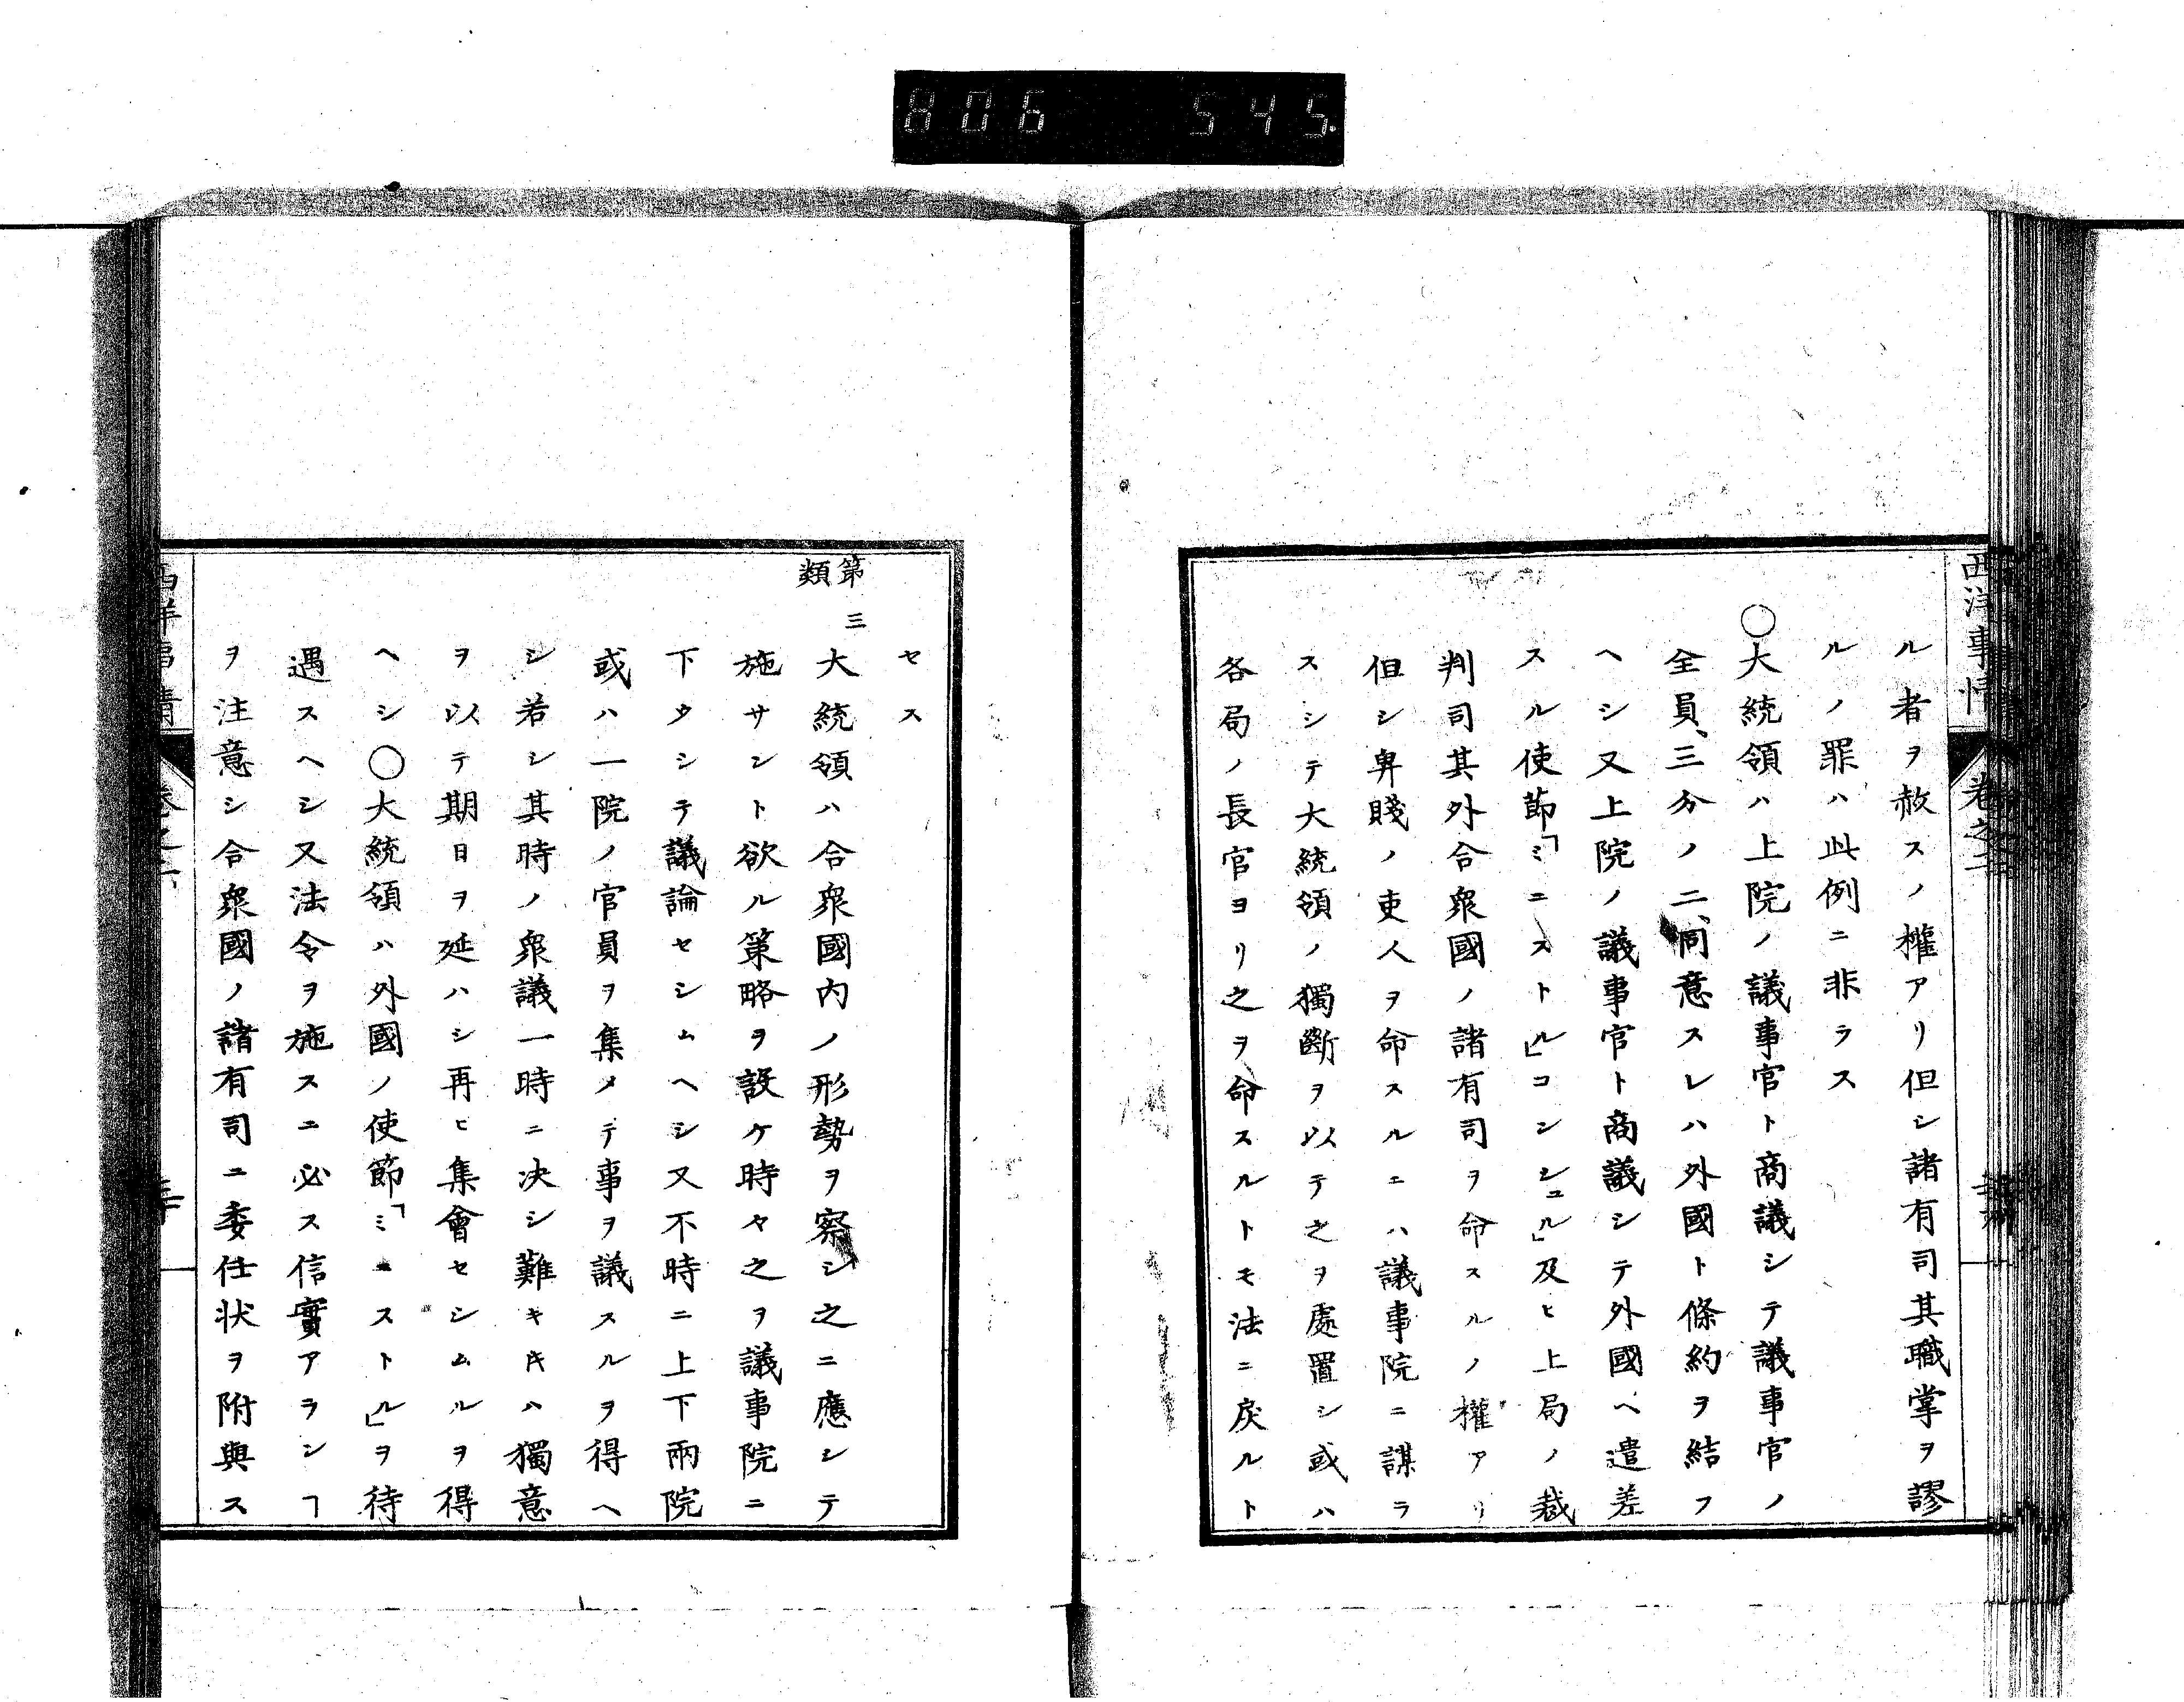 806 545.
西洋事情
卷之二
ル者ヲ赦スノ權アリ但シ諸有司其職掌ヲ謬
ルノ罪ハ此例ニ非ラス
○大統領ハ上院ノ議事官ト商議シテ議事官ノ
全員、三分ノ二、同意スレハ外國ト條約ヲ結フ
ヘシ又上院ノ議事官ト商議シテ外國ヘ遣差
スル使節「ミニストル」コンシュル」及ヒ上局ノ裁
判司其外合衆國ノ諸有司ヲ命スルノ權アリ
但シ卑賤ノ吏人ヲ命スルニハ議事院ニ謀ラ
スシテ大統領ノ獨斷ヲ以テ之ヲ處置シ或ハ
各局ノ長官ヨリ之ヲ命スルトモ法ニ戻ルト
セス
第三類
大統領ハ合衆國内ノ形勢ヲ察シ之ニ應シテ
施サント欲ル策略ヲ設ケ時々之ヲ議事院ニ
下タシテ議論セシムヘシ又不時ニ上下兩院
或ハ一院ノ官員ヲ集メテ事ヲ議スルヲ得ヘ
シ若シ其時ノ衆議一時ニ决シ難キキハ獨意
ヲ以テ期日ヲ延ハシ再ヒ集會セシムルヲ得
ヘシ○大統領ハ外國ノ使節「ミニストル」ヲ待
遇スヘシ又法令ヲ施スニ必ス信實アランヿ
ヲ注意シ合衆國ノ諸有司ニ委任状ヲ附與ス